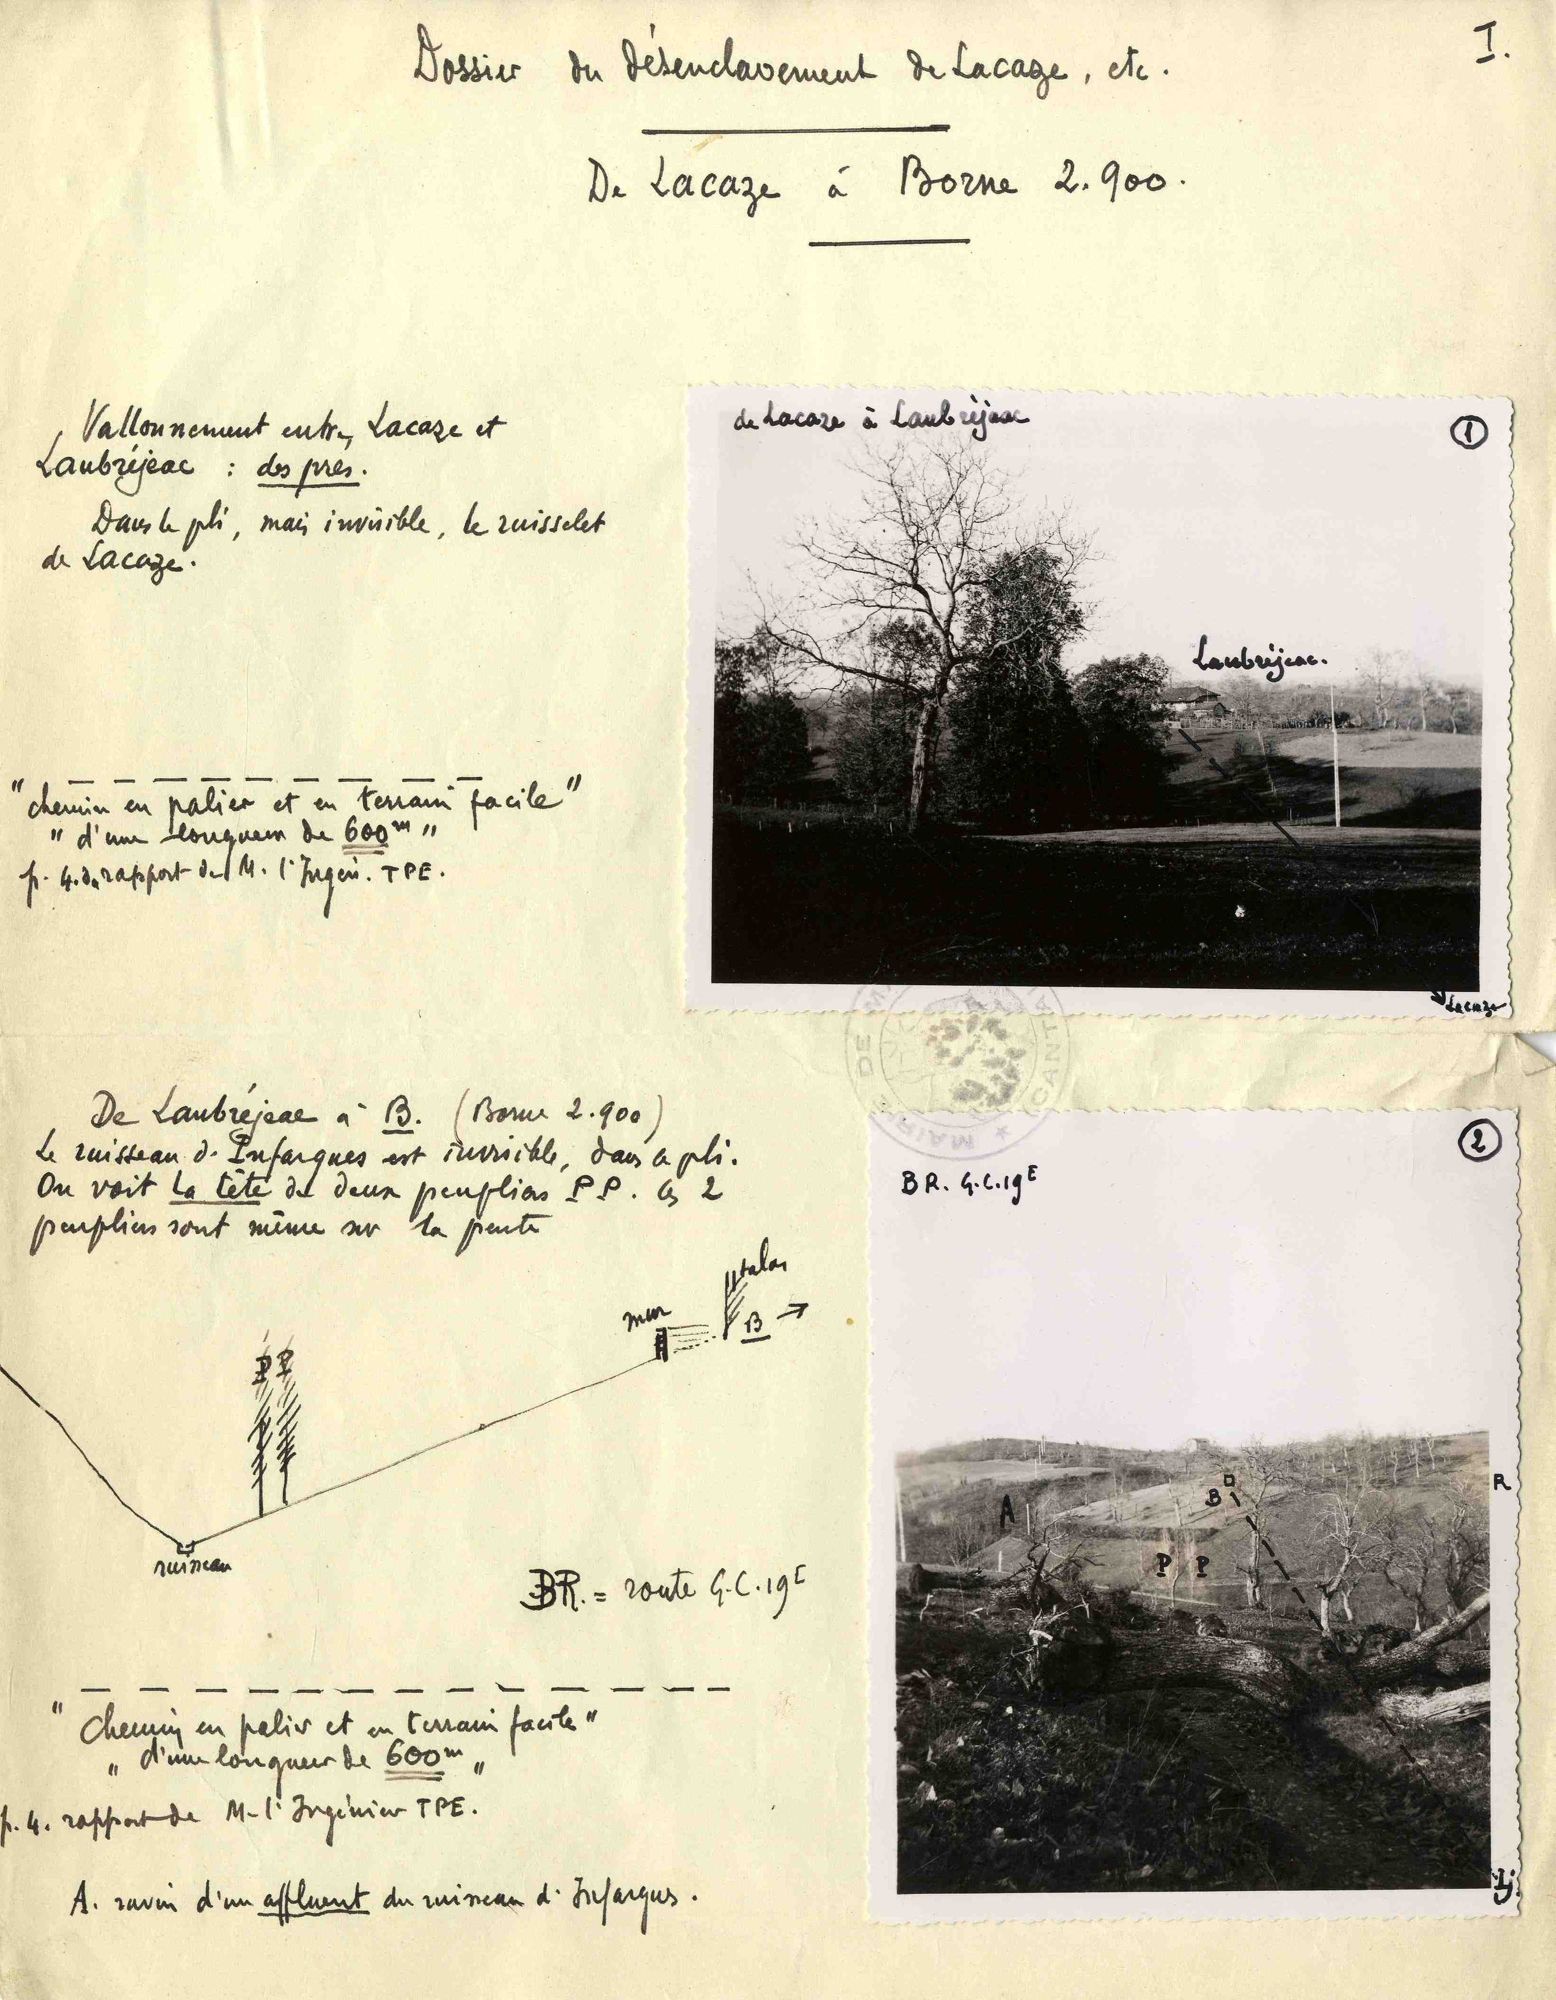 I.
Dossier du désenclavement de Lacaze, etc.
De Lacaze à Borne 2.900.
Vallonnement entre Lacaze et
Laubréjeac : des prés.
Dans le pli, mais invisible, le ruisselet
de Lacaze.
"chemin en palier et en terrain facile"
"d'une longueur de 600m"
p. 4. du rapport de M. l'Ingén. TPE.
de Lacaze à Laubréjeac
1
Laubréjeac.
Lacaze
MAIRIE DE CANTAL
De Laubréjeac à B. (Borne 2.900)
Le ruisseau d'Infargues est invisible, dans le pli.
On voit la tête de deux peupliers P P. Ces 2
peupliers sont même sur la pente
talus
mur
B
P P
ruisseau
BR. = route G.C.19E
"chemin en palier et en terrain facile"
"d'une longueur de 600m"
p. 4. rapport de M. l'Ingénieur TPE.
A. ravin d'un affluent du ruisseau d'Infargues.
2
BR. G.C.19E
R
B
A
P P
Lj